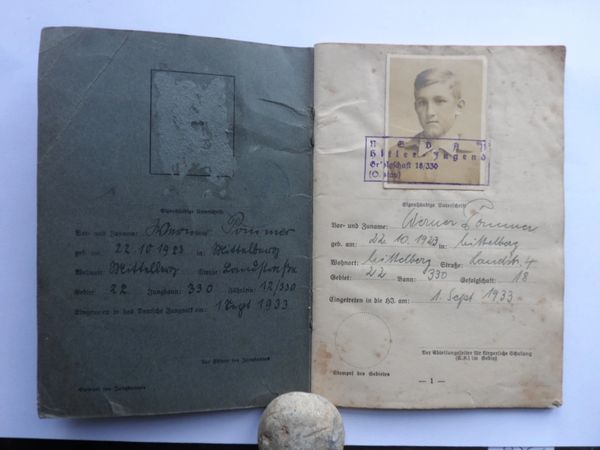 Eigenhändige Unterschrift
Vor- und Zuname: Werner Pommer
geb. am: 22.10.1923 in: Mittelberg
Wohnort: Mittelberg Straße: Landstraße
Gebiet: 22 Jungbann: 330 Fähnlein: 12/330
Eingetreten in das Deutsche Jungvolk am: 1. Sept 1933
Der Führer des Jungbannes
Stempel des Jungbannes
N S D A P
Hitler-Jugend
Gefolgschaft 18/330
Eigenhändige Unterschrift
Vor- und Zuname: Werner Pommer
geb. am: 22.10.1923 in: Mittelberg
Wohnort: Mittelberg Straße: Landstr. 4
Gebiet: 22 Bann: 330 Gefolgschaft: 18
Eingetreten in die HJ. am: 1. Sept 1933
Der Abteilungsleiter für körperliche Schulung
(E.K.) im Gebiet
Stempel des Gebietes
— 1 —